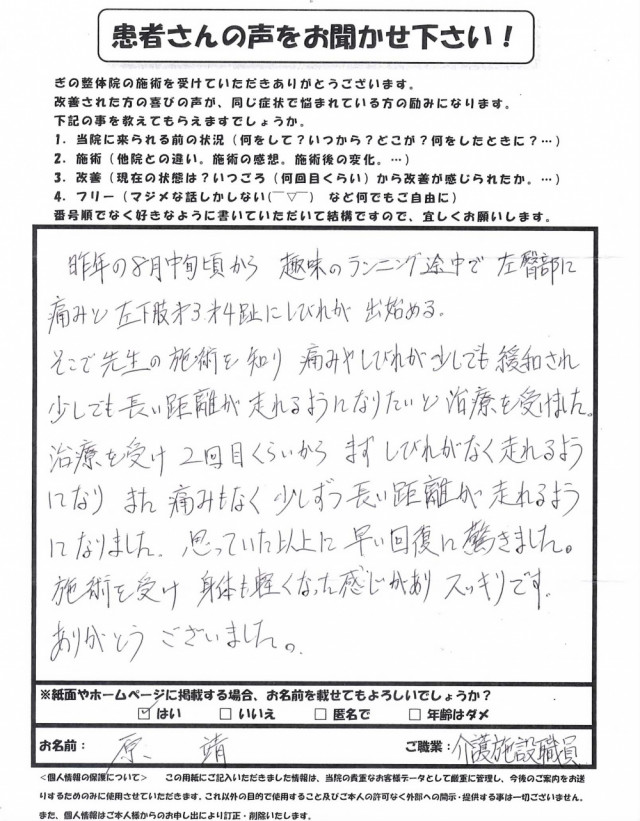 患者さんの声をお聞かせ下さい!
ぎの整体院の施術を受けていただきありがとうございます。
改善された方の喜びの声が、同じ症状で悩まれている方の励みになります。
下記の事を教えてもらえますでしょうか。
1. 当院に来られる前の状況(何をして?いつから?どこが?何をしたときに?…)
2. 施術(他院との違い。施術の感想。施術後の変化。…)
3. 改善(現在の状態は?いつごろ(何回目くらい)から改善が感じられたか。…)
4. フリー(マジメな話しかしない(￣▽￣) など何でもご自由に)
番号順でなく好きなように書いていただいて結構ですので、宜しくお願いします。
昨年の8月中旬頃から 趣味のランニング途中で 左臀部に
痛みと 左下肢オ3オ4趾にしびれが 出始める。
そこで先生の施術を知り 痛みやしびれが少しでも緩和され
少しでも長い距離が走れるようになりたいと治療を受けました。
治療を受け 2回目くらいから まず しびれがなく走れるよう
になり また 痛みもなく 少しずつ 長い距離が 走れるよう
になりました. 思っていた以上に 早い回復に驚きました。
施術を受け 身体も軽くなった感じがあり スッキリです.
ありがとう ございました。
※紙面やホームページに掲載する場合、お名前を載せてもよろしいでしょうか?
☑はい □いいえ □匿名で □年齢はダメ
お名前: 原 靖 ご職業: 介護施設職員
<個人情報の保護について> この用紙にご記入いただきました情報は、当院の貴重なお客様データとして厳重に管理し、今後のご案内をお送
りするためのみに使用させていただきます。これ以外の目的で使用すること及びご本人の許可なく外部への開示・提供する事は一切ございません。
また、個人情報はご本人様からのお申し出により訂正・削除いたします。